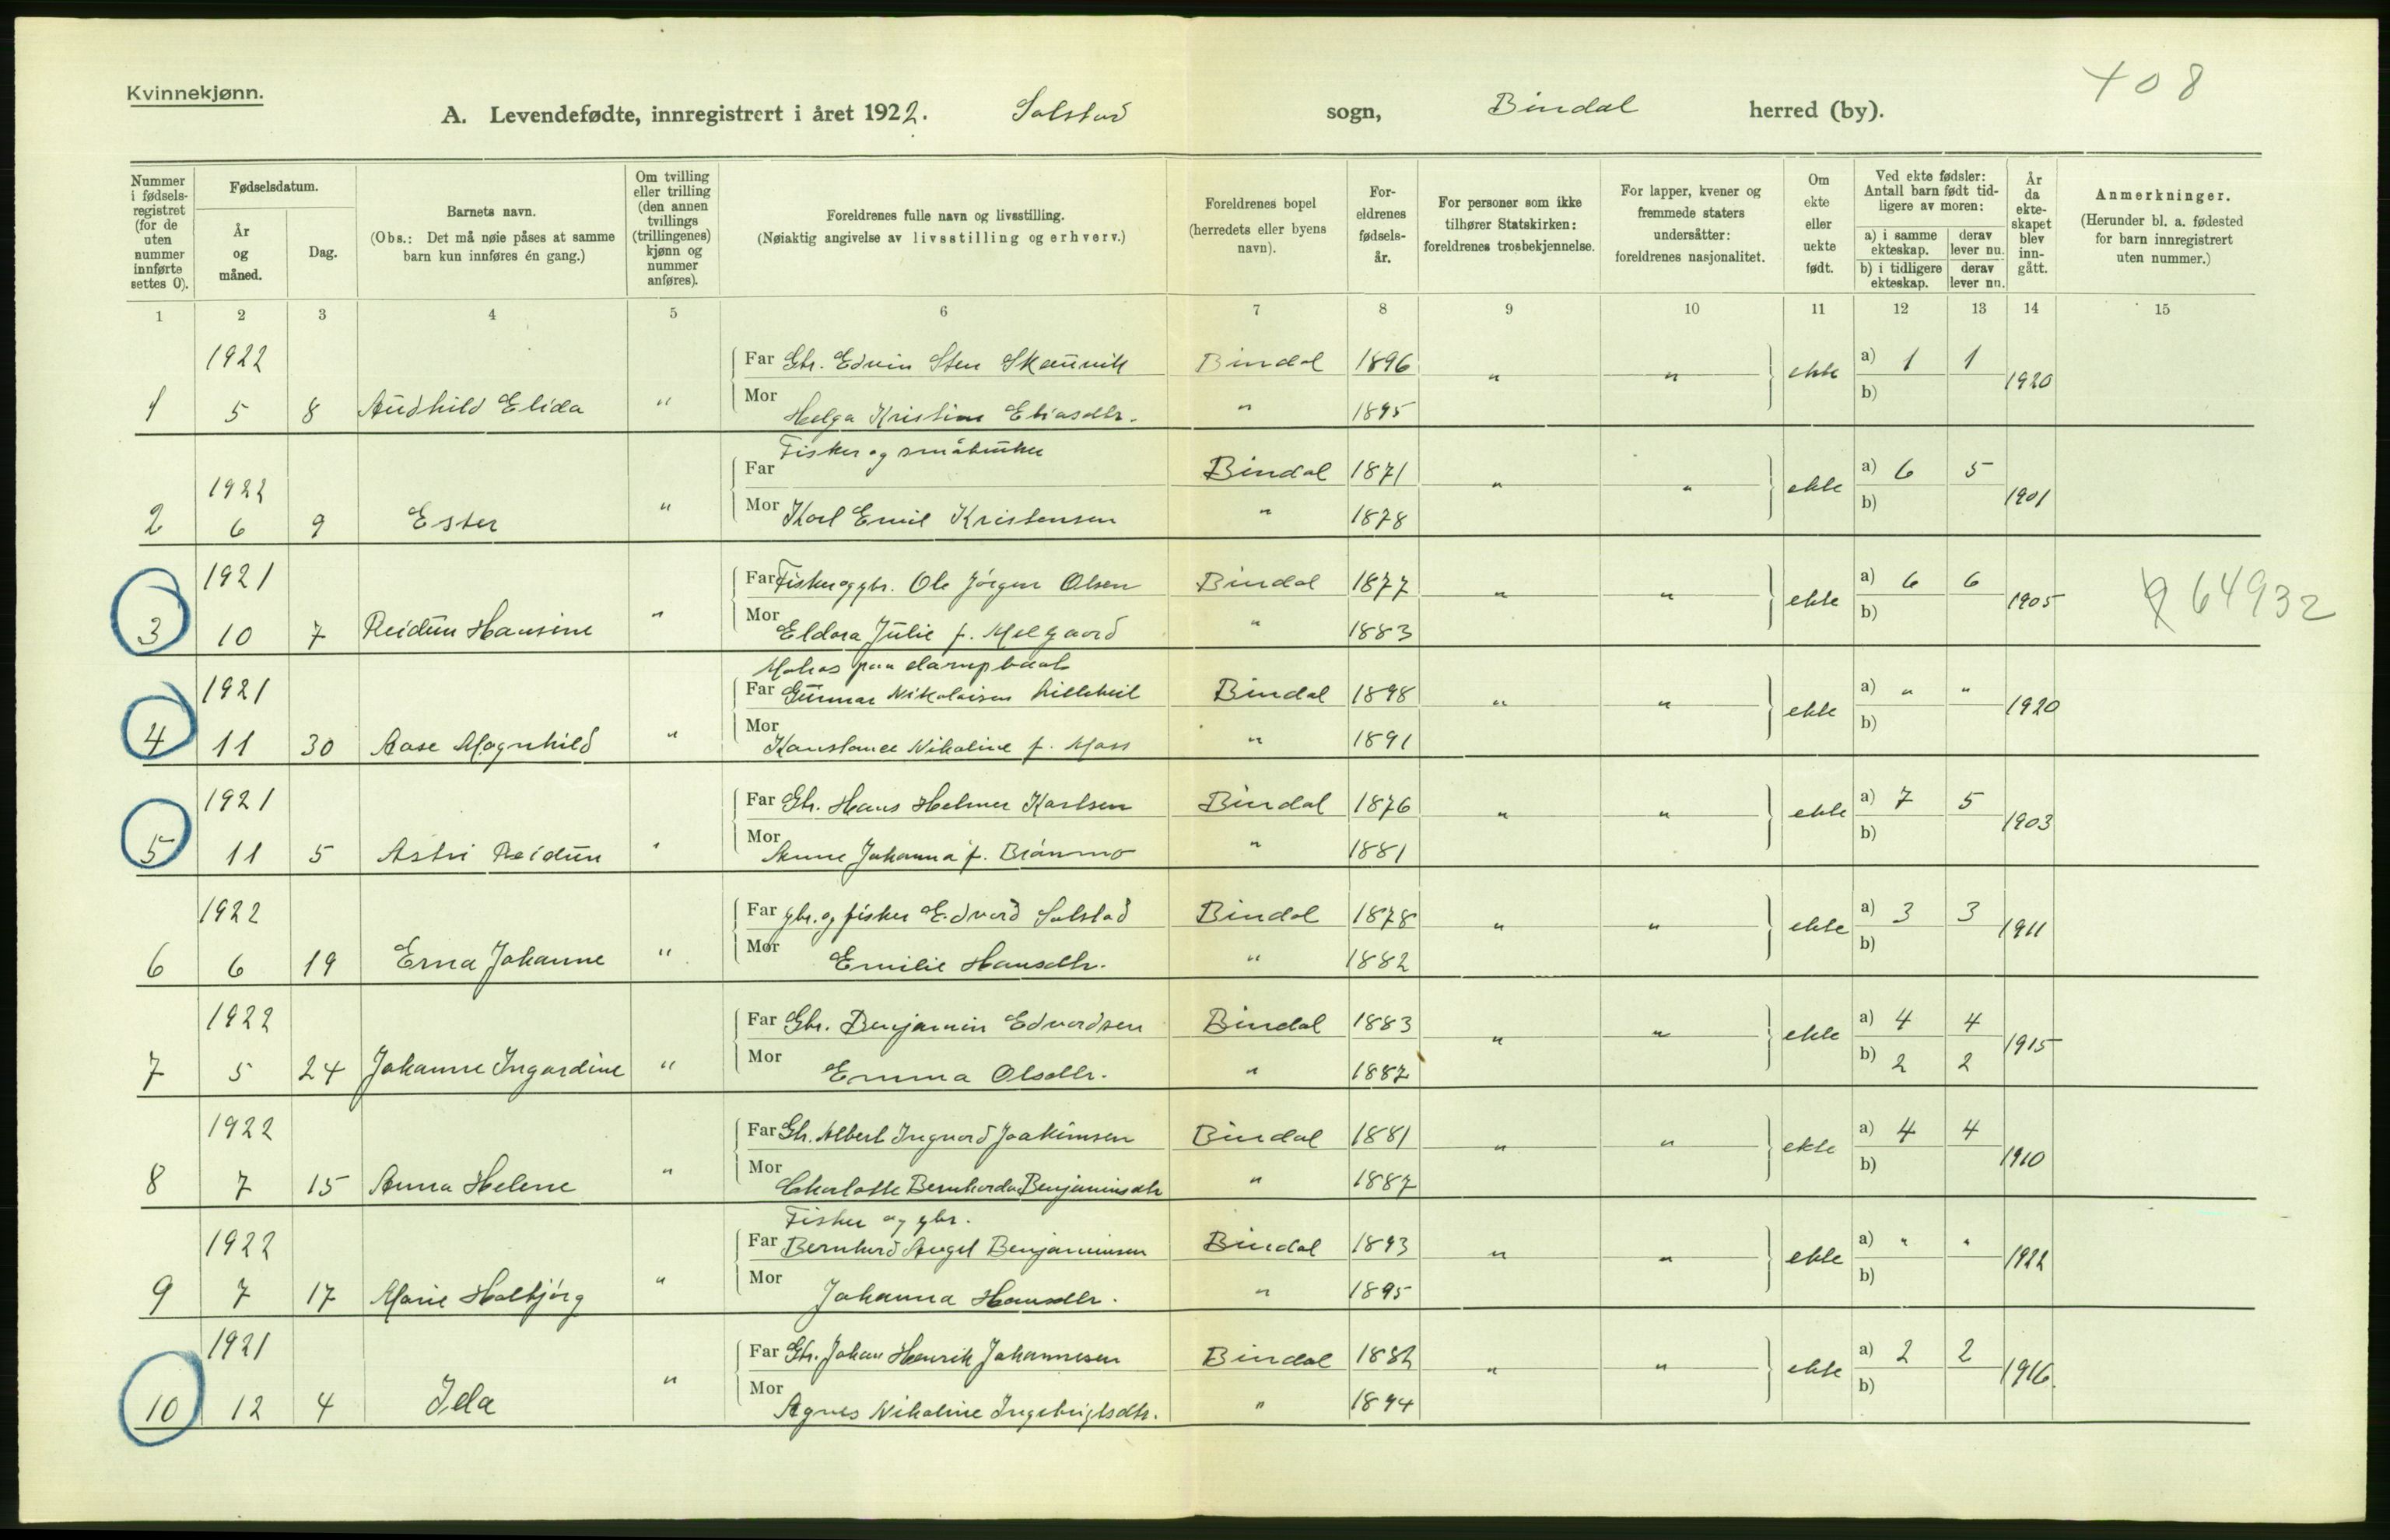 Kvinnekjønn.
408
A. Levendefødte, innregistrert i året 1922. Solstad sogn, Bindal herred (by).
Nummer i fødsels-registret (for de uten nummer innførte settes 0).
Fødselsdatum.
År og måned.
Dag.
Barnets navn.
(Obs.: Det må nøie påses at samme barn kun innføres én gang.)
Om tvilling eller trilling (den annen tvillings (trillingenes) kjønn og nummer anføres).
Foreldrenes fulle navn og livsstilling.
(Nøiaktig angivelse av livsstilling og erhverv.)
Foreldrenes bopel
(herredets eller byens navn).
For-eldrenes fødsels-år.
For personer som ikke tilhører Statskirken: foreldrenes trosbekjennelse.
For lapper, kvener og fremmede staters undersåtter: foreldrenes nasjonalitet.
Om ekte eller uekte født.
Ved ekte fødsler: Antall barn født tid-ligere av moren:
a) i samme ekteskap.
derav lever nu.
b) i tidligere ekteskap.
derav lever nu.
År da ekte-skapet blev inn-gått.
Anmerkninger.
(Herunder bl. a. fødested for barn innregistrert uten nummer.)
1 2 3 4 5 6 7 8 9 10 11 12 13 14 15
1922 Far Gbr. Edvin Sten Skaunvik Bindal 1896 " " ekte a) 1 1 1920
1 5 8 Audhild Elida " Mor Helga Kristine Eliasdtr. " 1895 b)
Fisker og småbruker
1922 Far Bindal 1871 " " ekte a) 6 5 1901
2 6 9 Ester " Mor Karl Emil Kristensen " 1878 b)
1921 Far Fisker og gbr. Ole Jörgen Olsen Bindal 1877 " " ekte a) 6 6 1905 64932
3 10 7 Reidun Hansine " Mor Eldora Julie f. Melgaard " 1883 b)
Matros paa dampbaat
1921 Far Gunnar Nikolaisen Lilleheil Bindal 1898 " " ekte a) " " 1920
4 11 30 Aase Magnhild " Mor Konstance Nikoline f. Moss " 1891 b)
1921 Far Gbr. Hans Helmer Karlsen Bindal 1876 " " ekte a) 7 5 1903
5 11 5 Astri Reidun " Mor Anne Johanna f. Brönmo " 1881 b)
1922 Far gbr. og fisker Edvard Solstad Bindal 1878 " " ekte a) 3 3 1911
6 6 19 Erna Johanne " Mor Emilie Hansdtr. " 1882 b)
1922 Far Gbr. Benjamin Edvardsen Bindal 1883 " " ekte a) 4 4 1915
7 5 24 Johanne Ingardine " Mor Emma Olsdtr. " 1887 b) 2 2
1922 Far Gbr. Albert Ingvard Joakimsen Bindal 1881 " " ekte a) 4 4 1910
8 7 15 Anna Helene " Mor Charlotte Bernharda Benjaminsdtr " 1887 b)
Fisker og gbr.
1922 Far Bernhard Angel Benjaminsen Bindal 1893 " " ekte a) " " 1922
9 7 17 Marie Halbjörg " Mor Johanna Hansdtr. " 1895 b)
1921 Far Gbr. Johan Henrik Johannesen Bindal 1882 " " ekte a) 2 2 1916.
10 12 4 Ida " Mor Agnes Nikoline Ingebrigtsdtr. " 1894 b)